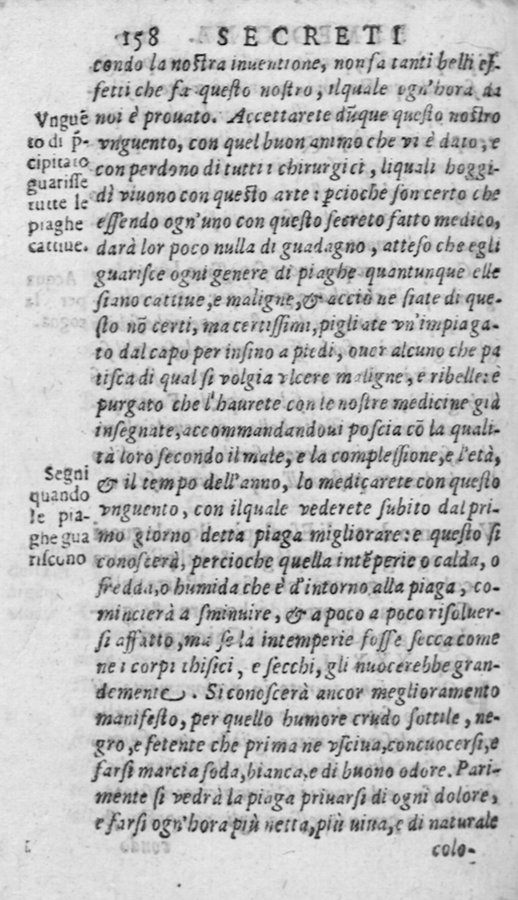 158 SECRETI
condo la nostra inuentione, non fa tanti belli ef-
fetti che fa questo nostro, ilquale ogn'hora da
noi è prouato. Accettarete dūque questo nostro
vnguento, con quel buon animo che vi è dato, e
con perdono di tutti i chirurgici, liquali hoggi-
dì viuono con questo arte: pcioche son certo che
essendo ogn'uno con questo secreto fatto medico,
darà lor poco nulla di guadagno, atteso che egli
guarisce ogni genere di piaghe quantunque elle
siano cattiue, e maligne, & acciò ne siate di que-
sto nō certi, ma certissimi, pigliate vn'impiaga-
to dal capo per insino a piedi, ouer alcuno che pa
tisca di qual si volgia vlcere maligne, e ribelle: è
purgato che l'haurete con le nostre medicine già
insegnate, accommandandoui poscia cō la quali-
tà loro secondo il male, e la complessione, e l'età,
& il tempo dell'anno, lo medicarete con questo
vnguento, con ilquale vederete subito dal pri-
mo giorno detta piaga migliorare: e questo si
conoscerà, percioche quella intēperie o calda, o
fredda, o humida che è d'intorno alla piaga, co-
mincierà a sminuire, & a poco a poco risoluer-
si affatto, ma se la intemperie fosse secca come
ne i corpi thisici, e secchi, gli nuocerebbe gran-
demente. Si conoscerà ancor meglioramento
manifesto, per quello humore crudo sottile, ne-
gro, e fetente che prima ne vsciua, concuocersi, e
farsi marcia soda, bianca, e di buono odore. Pari-
mente si vedrà la piaga priuarsi di ogni dolore,
e farsi ogn'hora più netta, più uiua, e di naturale
colo-
Vnguē
to di p̄-
cipitato
guarisse
tutte le
piaghe
cattiue.
Segni
quando
le pia-
ghe gua
riscono